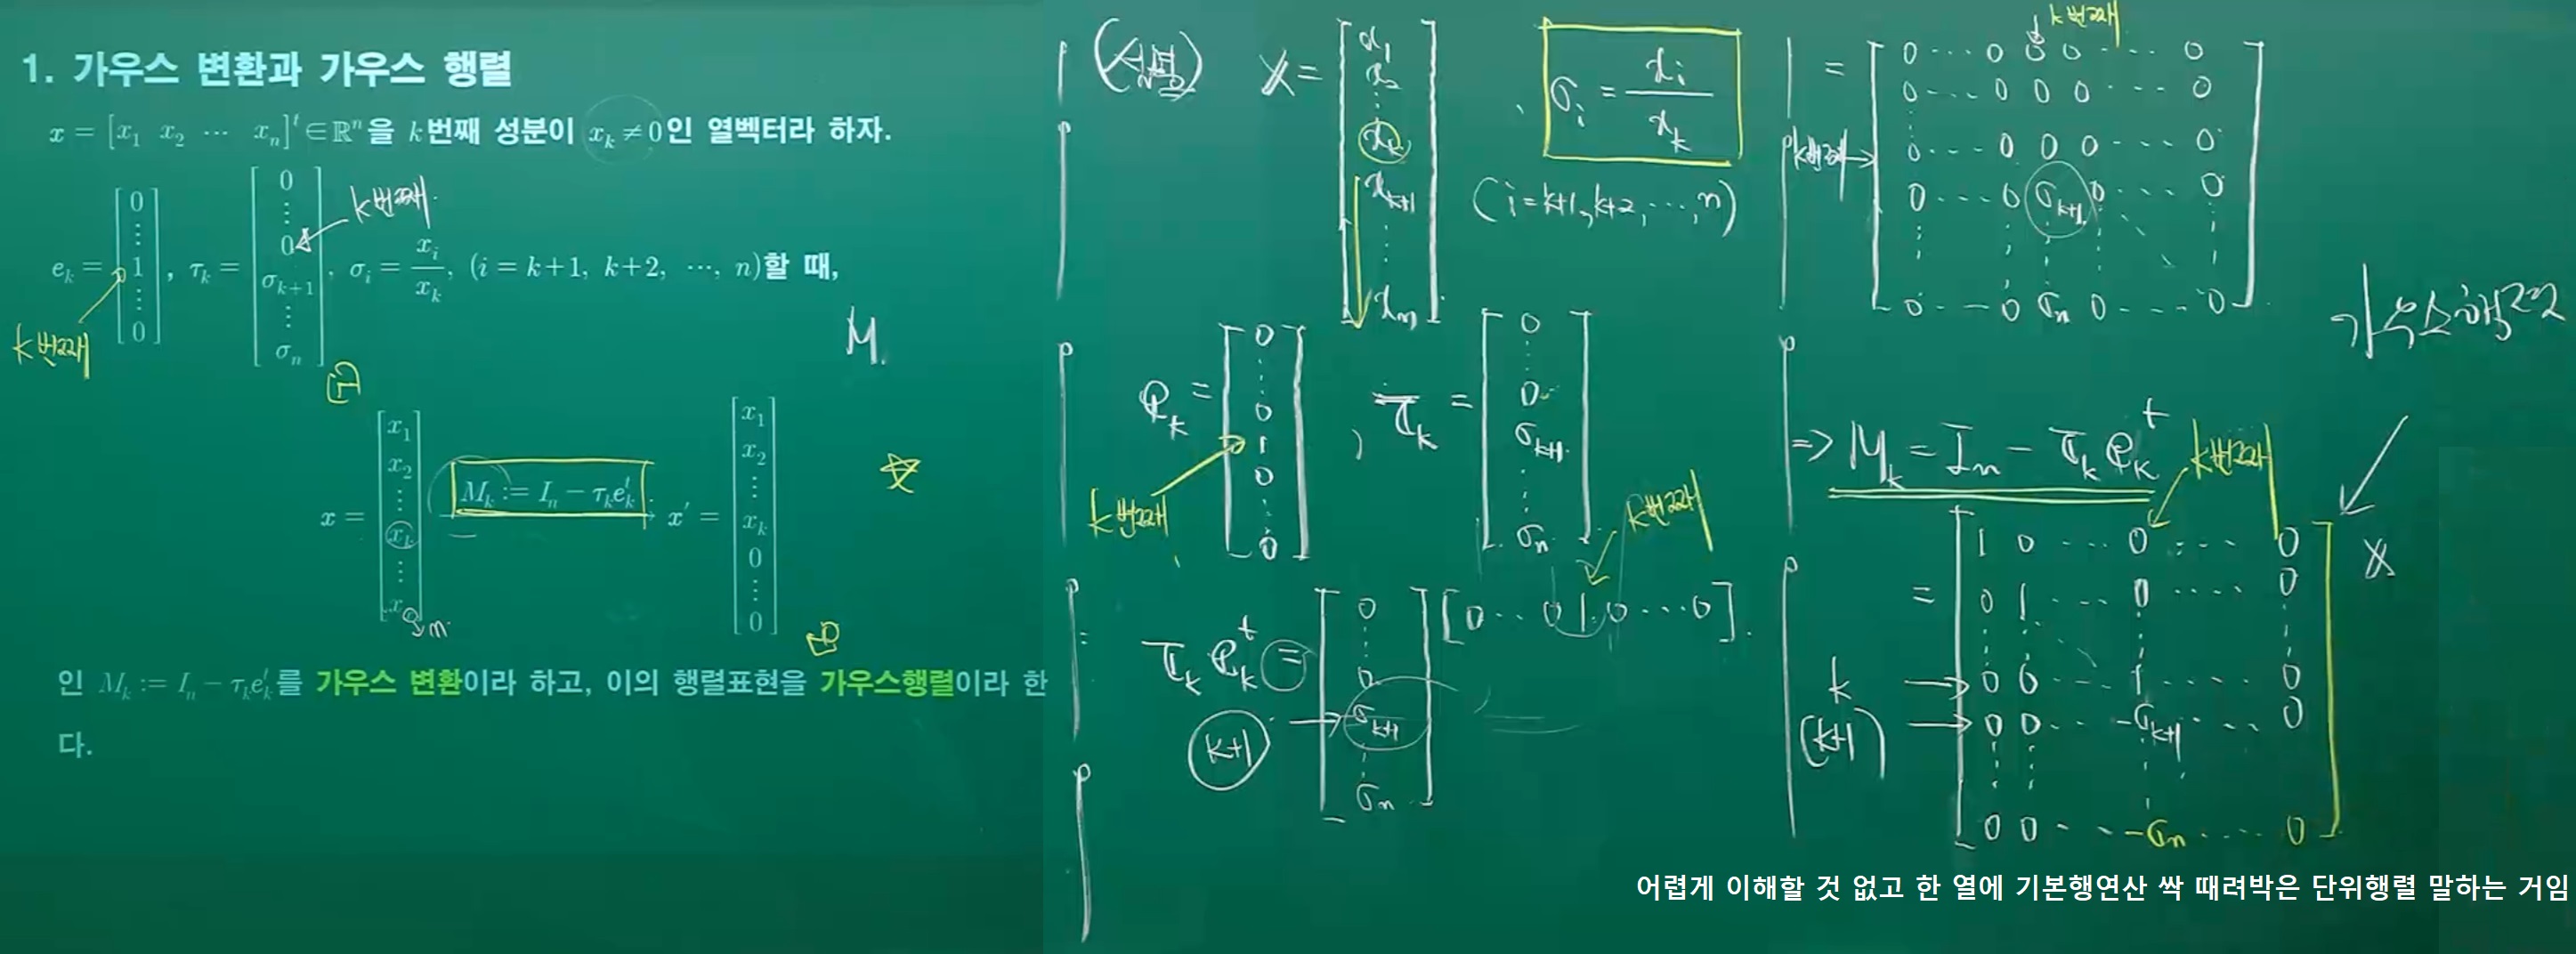 1. 가우스 변환과 가우스 행렬
x = [x₁ x₂ ⋯ xₙ]ᵗ ∈ ℝⁿ을 k번째 성분이 xₖ ≠ 0인 열벡터라 하자.
eₖ = [0 ⋮ 1 ⋮ 0], τₖ = [0 ⋮ 0 σₖ₊₁ ⋮ σₙ], σᵢ = xᵢ/xₖ, (i = k+1, k+2, ⋯, n)할 때,
k번째
k번째
M
x = [x₁ x₂ ⋮ xₖ ⋮ xₙ] Mₖ := Iₙ − τₖeₖᵗ → x′ = [x₁ x₂ ⋮ xₖ 0 ⋮ 0]
n
인 Mₖ := Iₙ − τₖeₖᵗ를 가우스 변환이라 하고, 이의 행렬표현을 가우스행렬이라 한
다.
(설명) x = [x₁ x₂ ⋮ xₖ xₖ₊₁ ⋮ xₙ], σᵢ = xᵢ/xₖ
(i = k+1, k+2, ⋯, n)
eₖ = [0 ⋮ 0 1 0 ⋮ 0], τₖ = [0 ⋮ 0 σₖ₊₁ ⋮ σₙ]
k번째
k번째
τₖeₖᵗ = [0 ⋮ 0 σₖ₊₁ ⋮ σₙ] [0 ⋯ 0 1 0 ⋯ 0]
k+1 →
k번째
= [0 ⋯ 0 0 0 ⋯ 0
0 ⋯ 0 0 0 ⋯ 0
⋮
k번째 → 0 ⋯ 0 0 0 ⋯ 0
0 ⋯ 0 σₖ₊₁ 0 ⋯ 0
⋮ ⋮ ⋮ ⋮ ⋮
0 ⋯ 0 σₙ 0 ⋯ 0]
가우스행렬
⇒ Mₖ = Iₙ − τₖeₖᵗ
k번째
= [1 0 ⋯ 0 ⋯ 0
0 1 ⋯ 0 ⋯ 0
⋮ ⋮ ⋱ ⋮ ⋮
k → 0 0 ⋯ 1 ⋯ 0
(k+1) → 0 0 ⋯ −σₖ₊₁ ⋯ 0
⋮ ⋮ ⋮ ⋮
0 0 ⋯ −σₙ ⋯ 0]
x
어렵게 이해할 것 없고 한 열에 기본행연산 싹 때려박은 단위행렬 말하는 거임